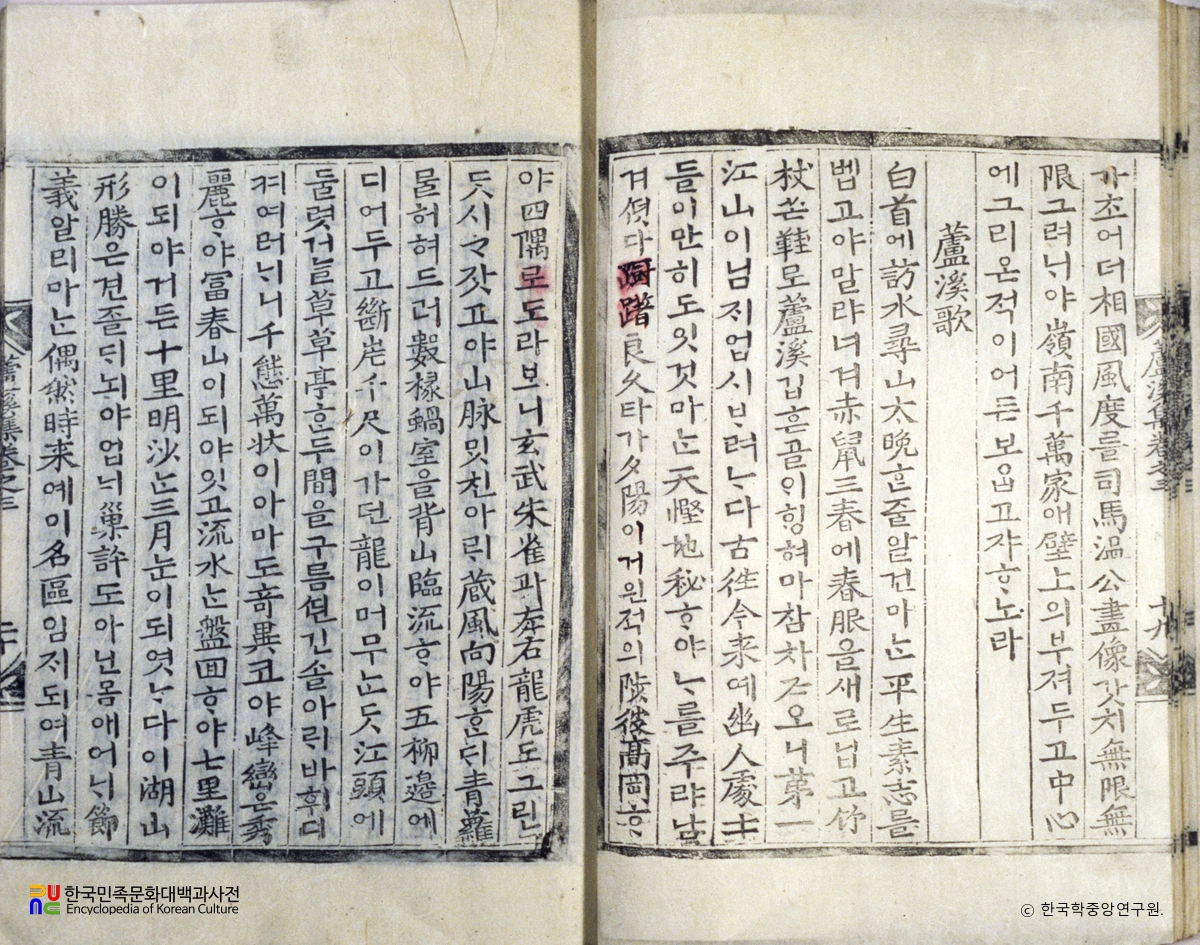 가ᄌᆞ어더相國風度를司馬溫公畫像갓치無限無
限그려ᄂᆡ야嶺南千萬家애壁上의부쳐두고中心
에그리온적이어든보ᄋᆞᆸ고쟈ᄒᆞ노라
蘆溪歌
白首에訪水尋山太晩ᄒᆞᆫ줄알건마ᄂᆞᆫ平生素志를
벱고야말랴녀겨赤鼠三春에春服을새로닙고竹
杖芒鞋로蘆溪깁흔골이ᄒᆡᆼ혀마참ᄎᆞᄌᆞ오니第一
江山이님ᄌᆡ업시ᄇᆞ려ᄂᆞ다古往今來예幽人處士
들이만히도잇것마ᄂᆞᆫ天慳地秘ᄒᆞ야ᄂᆞ를주랴남
겨ᄯᅥᆺ다躕躇良久타가夕陽이거윈적의陟彼高岡ᄒᆞ
야四隅로도라보니玄武朱雀과左右龍虎도그린
ᄃᆞᆺ시ᄀᆞ잣고야山脉ᄆᆡᆺ친아ᄅᆡ藏風向陽ᄒᆞᆫᄃᆡ靑蘿
ᄅᆞᆯ허혀드러數椽蝸室을背山臨流ᄒᆞ야五柳邊에
디어두고斷崖千尺이가던龍이머무ᄂᆞᆫᄃᆞᆺ江頭에
둘렷거ᄂᆞᆯ草草亭ᄒᆞᆫ두間을구름ᄯᅵᆫ긴솔아ᄅᆡ바휘디
켜여러ᄂᆡ니千態萬狀이아마도奇異코야峰巒은秀
麗ᄒᆞ야富春山이되야잇고流水ᄂᆞᆫ盤回ᄒᆞ야七里灘
이되야거든十里明沙ᄂᆞᆫ三月눈이되엿ᄂᆞ다이湖山
形勝은견졸ᄃᆡ뇌야업ᄂᆡ巢許도아닌몸애어ᄂᆡ節
義알리마ᄂᆞᆫ偶然時來예이名區임ᄌᆡ되여靑山流
蘆溪集卷之三
十九
蘆溪集卷之三
二十
한국민족문화대백과사전
Encyclopedia of Korean Culture
ⓒ 한국학중앙연구원.